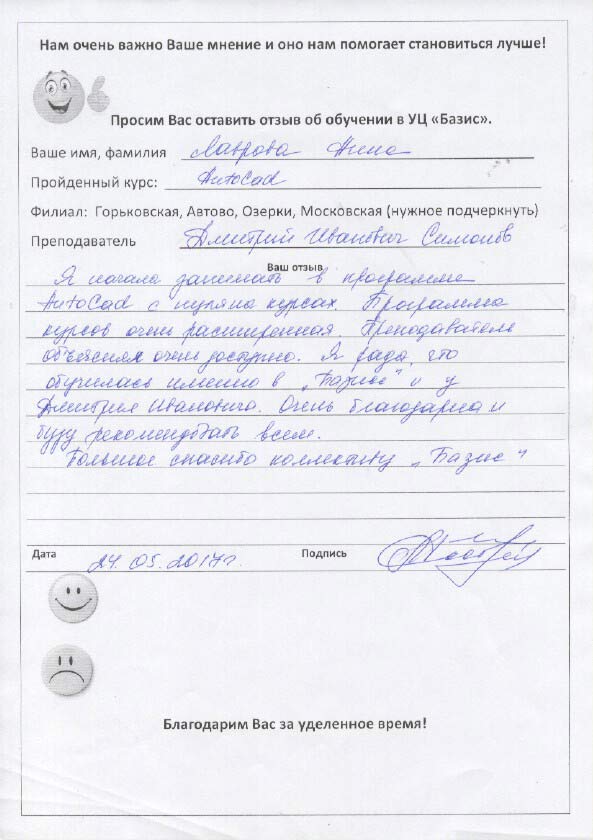 Нам очень важно Ваше мнение и оно нам помогает становиться лучше!
Просим Вас оставить отзыв об обучении в УЦ «Базис».
Ваше имя, фамилия Лаврова Анна
Пройденный курс: AutoCad
Филиал: Горьковская, Автово, Озерки, Московская (нужное подчеркнуть)
Преподаватель Дмитрий Иванович Симонов
Ваш отзыв
Я начала занимать в программе
AutoCad с нуля на курсах. Программа
курсов очень расширенная. Преподаватель
объяснял очень доступно. Я рада, что
обучилась именно в „Базисе" и у
Дмитрия Ивановича. Очень благодарна и
буду рекомендовать всем.
Большое спасибо коллективу „Базис"
Дата 24. 05. 2017г. Подпись
Благодарим Вас за уделенное время!